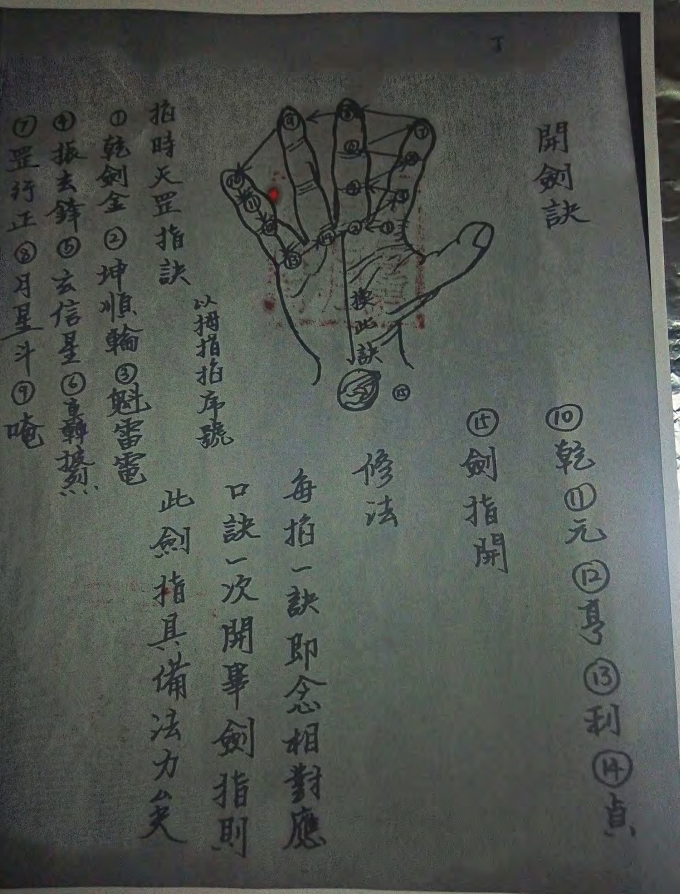 丁
開劍訣
此訣
⑮
掐時天罡指訣
以拇指掐序號
①乾劍金②坤順輪③魁雷電
④振去鋒⑤玄信星⑥轟
⑦罡行正⑧月星斗⑨唵
⑩乾⑪元⑫亨⑬利⑭貞
⑮劍指開
修法
每掐一訣即念相對應
口訣一次開畢劍指則
此劍指具備法力矣